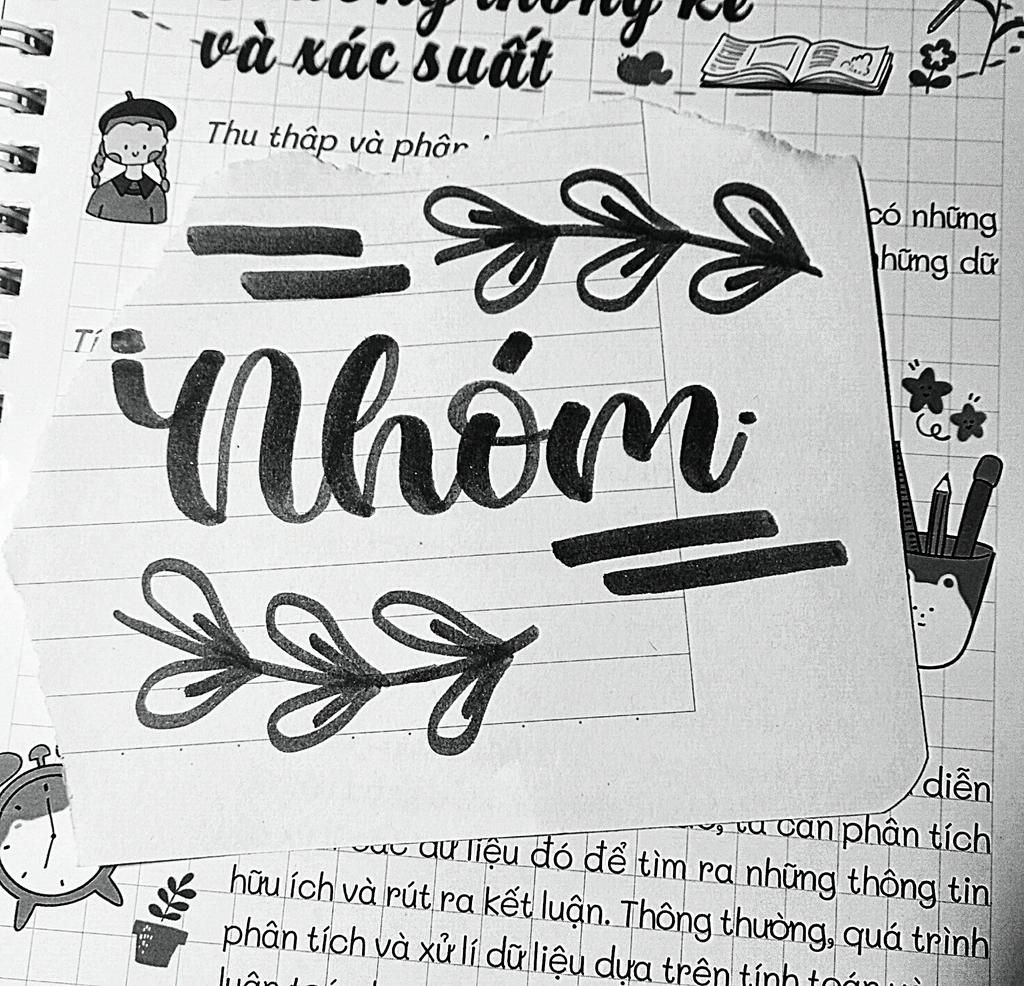 thống kê
và xác suất
Thu thập và phân
có những
những dữ
Tí
Nhóm
diễn
ta cần phân tích
các dữ liệu đó để tìm ra những thông tin
hữu ích và rút ra kết luận. Thông thường, quá trình
phân tích và xử lí dữ liệu dựa trên tính toán và
luận